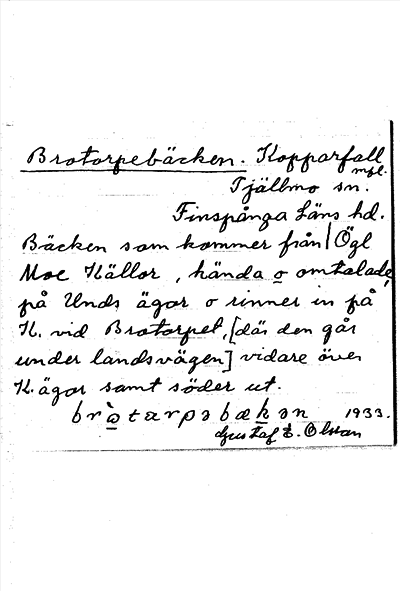 Brotorpebäcken. Kopparfall
mpl.
Tjällmo sn.
Finspånga Läns hd.
Bäcken som kommer från | Ögl
Moe Källor, kända o omtalade,
på Unds ägor o rinner in på
K. vid Brotorpet, [där den går
under landsvägen] vidare över
K. ägor samt söder ut.
bròtarpəbækən 1933.
Gustaf E. Olsson